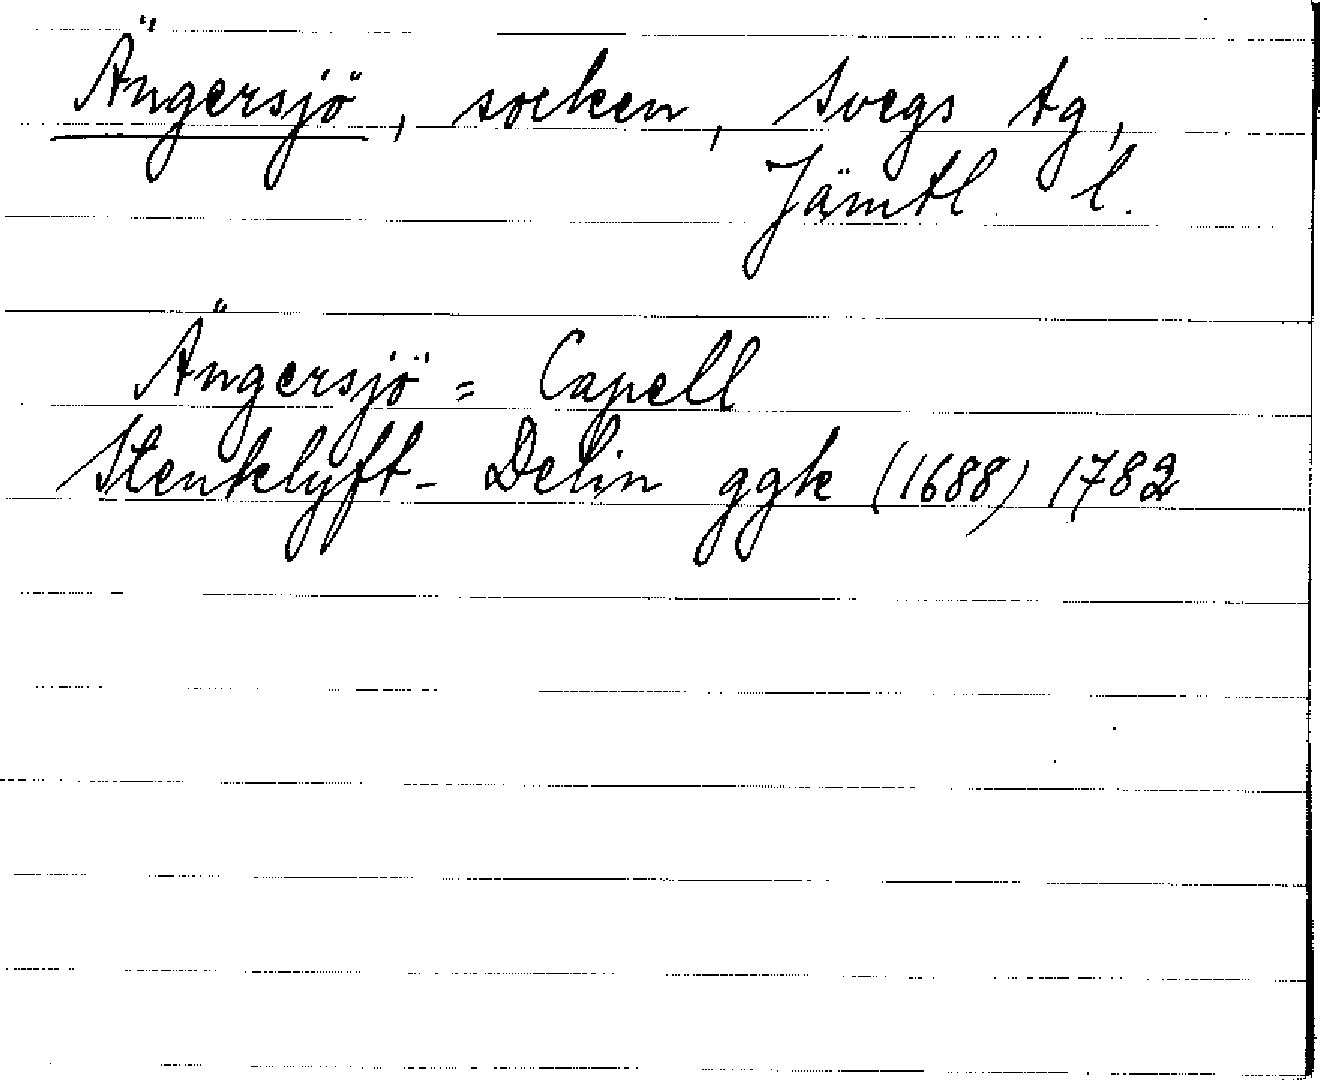 Ängersjö, socken, Svegs tg,
Jämtl l.
Ängersjö = Capell
Stenklyft- Delin ggk (1688) 1782